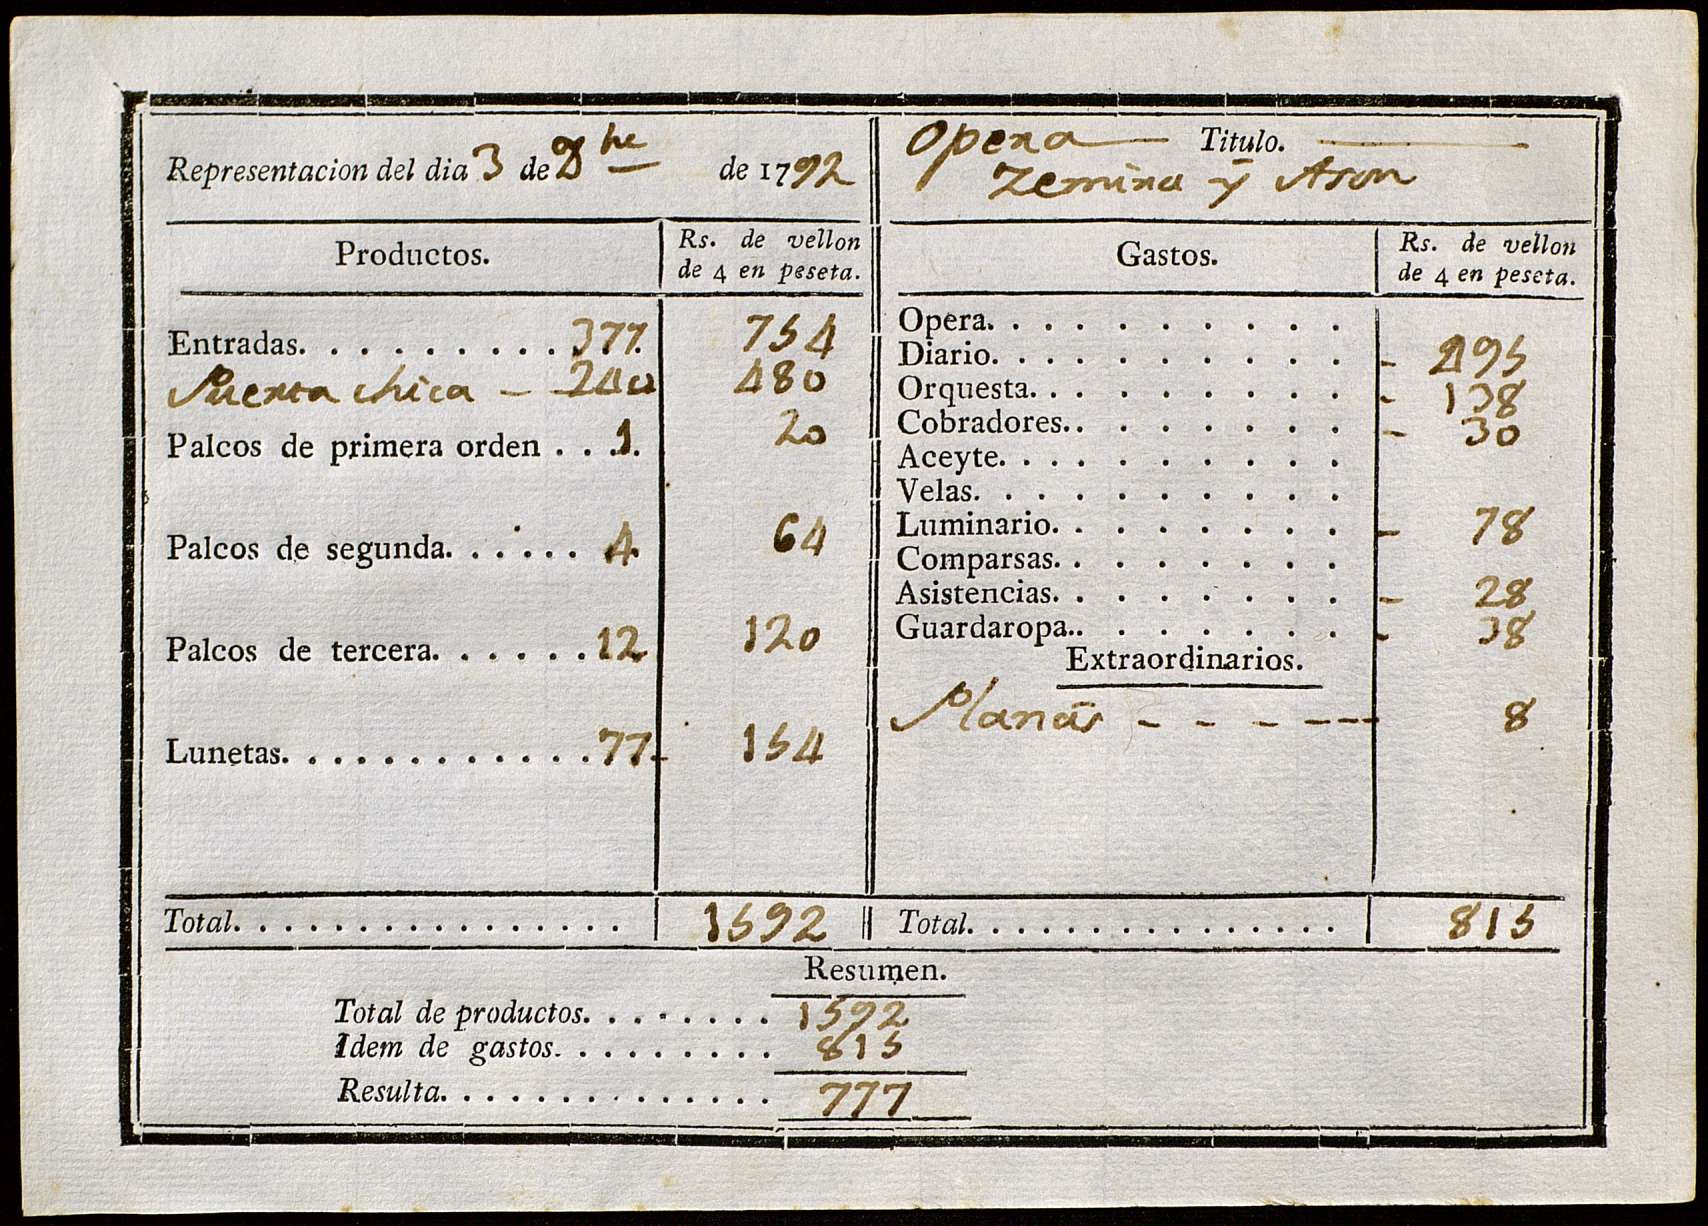 Representacion del dia 3 de de 1792
Productos.
Rs. de vellon
de 4 en peseta.
Entradas. . . . . . . . . . 377. 754
Puerta chica - 240 480
Palcos de primera orden . . . 1. 20
Palcos de segunda. . . . . . 4. 64
Palcos de tercera. . . . . . 12 120
Lunetas. . . . . . . . . . . . . 77 - 154
Total. . . . . . . . . . . . . . . . 1592
Opera Titulo.
Zemira y Asor
Gastos.
Rs. de vellon
de 4 en peseta.
Opera. . . . . . . . . . .
Diario. . . . . . . . . . . - 495
Orquesta. . . . . . . . . - 138
Cobradores. . . . . . . . - 30
Aceyte. . . . . . . . . . .
Velas. . . . . . . . . . .
Luminario. . . . . . . . - 78
Comparsas. . . . . . . .
Asistencias. . . . . . . . - 28
Guardaropa. . . . . . . . - 38
Extraordinarios.
Planas - - - - - - 8
Total. . . . . . . . . . . . . . . . 815
Resumen.
Total de productos. . . . . . . . 1592
Idem de gastos. . . . . . . . . . 815
Resulta. . . . . . . . . . . . . . 777